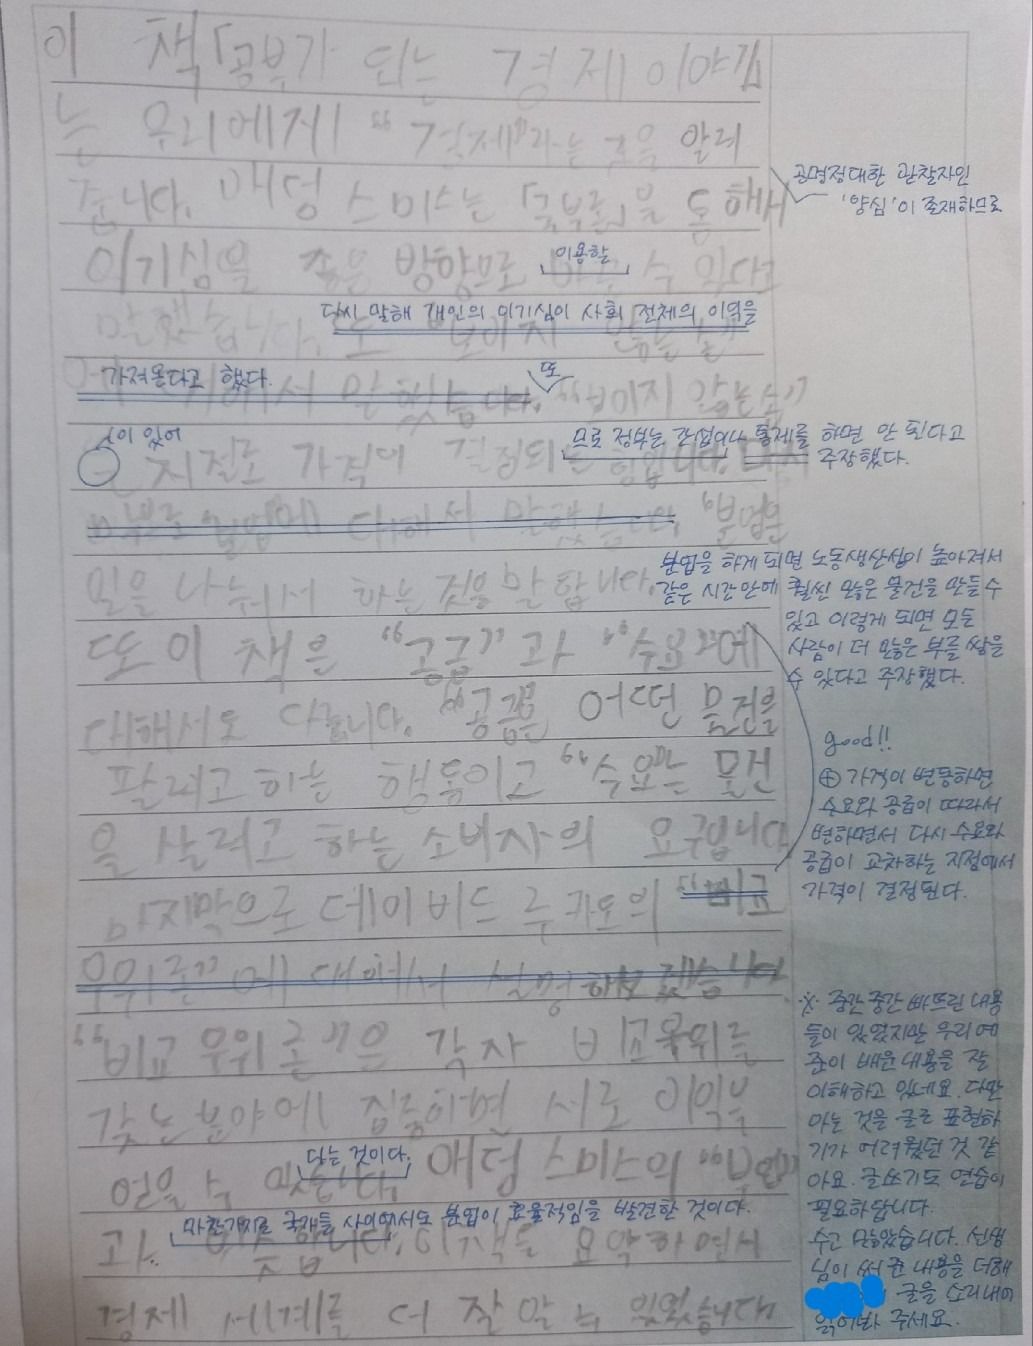 이 책 「공부가 되는 경제 이야기」
는 우리에게 "경제"라는 것을 알려
줍니다. 애덤 스미스는 「국부론」을 통해서
공명정대한 관찰자인
'양심'이 존재하므로
이기심을 좋은 방향으로 수 있다고
이용할
말했습니다. 또 보이지 않는 손
다시 말해 개인의 이기심이 사회 전체의 이익을
가져온다고 했다.
서 말했습니다. "보이지 않는 손"
또
이 있어
저절로 가격이 결정되는 힘입니다.
므로 정부는 간섭이나 통제를 하면 안 된다고
주장했다.
분업에 대해서 말했습니다. "분업은
일을 나눠서 하는 것을 말합니다.
분업을 하게 되면 노동생산성이 높아져서
같은 시간 안에 훨씬 많은 물건을 만들 수
있고 이렇게 되면 모든
사람이 더 많은 부를 쌓을
수 있다고 주장했다.
또 이 책은 "공급"과 "수요"에
대해서도 다룹니다. "공급은 어떤 물건을
팔려고 하는 행동이고 "수요"는 물건
을 살려고 하는 소비자의 요구입니다
good!!
⊕ 가격이 변동하면
수요와 공급이 따라서
변하면서 다시 수요와
공급이 교차하는 지점에서
가격이 결정된다.
마지막으로 데이비드 의 "비교
우위론"에 대해서 설명
"비교 우위론"은 각자 비교 우위를
갖는 분야에 집중하면 서로 이익을
얻을 수 있습니다. 애덤 스미스의 "분업"
다는 것이다.
과 비슷합니다. 이 책을 요약하면서
마찬가지로 국가들 사이에서도 분업이 효율적임을 발견한 것이다.
경제 세계를 더 잘 알 수 있었습니다
※ 중간중간 빠뜨린 내용
들이 있었지만 우리 예
준이 배운 내용을 잘
이해하고 있네요. 다만
아는 것을 글로 표현하
기가 어려웠던 것 같
아요. 글쓰기도 연습이
필요하답니다.
수고 많았습니다. 선생
님이 써준 내용을 더해
글을 소리내어
읽어봐 주세요.